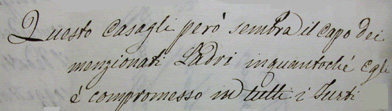 Questo Casagli però sembra il capo dei
menzionati Ladri inquantochè Egli
è compromesso in tutti i Furti